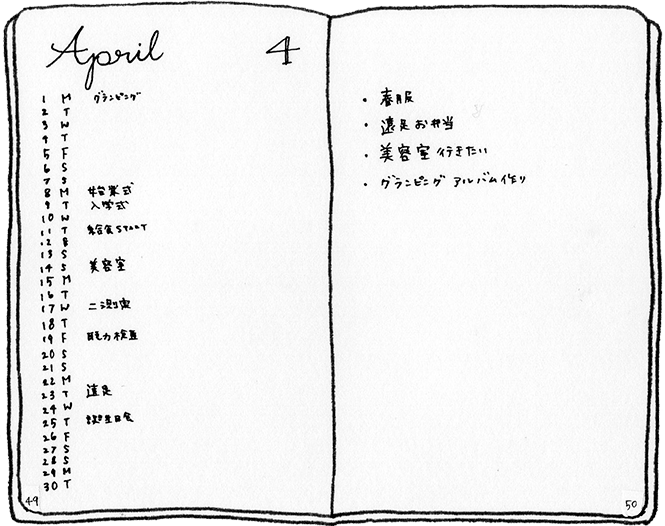 April 4
1 M グランピング
2 T
3 W
4 T
5 F
6 S
7 S
8 M 始業式
9 T 入学式
10 W
11 T 給食START
12 B
13 S
14 S 美容室
15 M
16 T
17 W 二測定
18 T
19 F
20 S
21 S
22 M
23 T 遠足
24 W
25 T 誕生日会
26 F
27 S
28 S
29 M
30 T
49
・春服
・遠足お弁当
・美容室行きたい
・グランピング アルバム作り
50